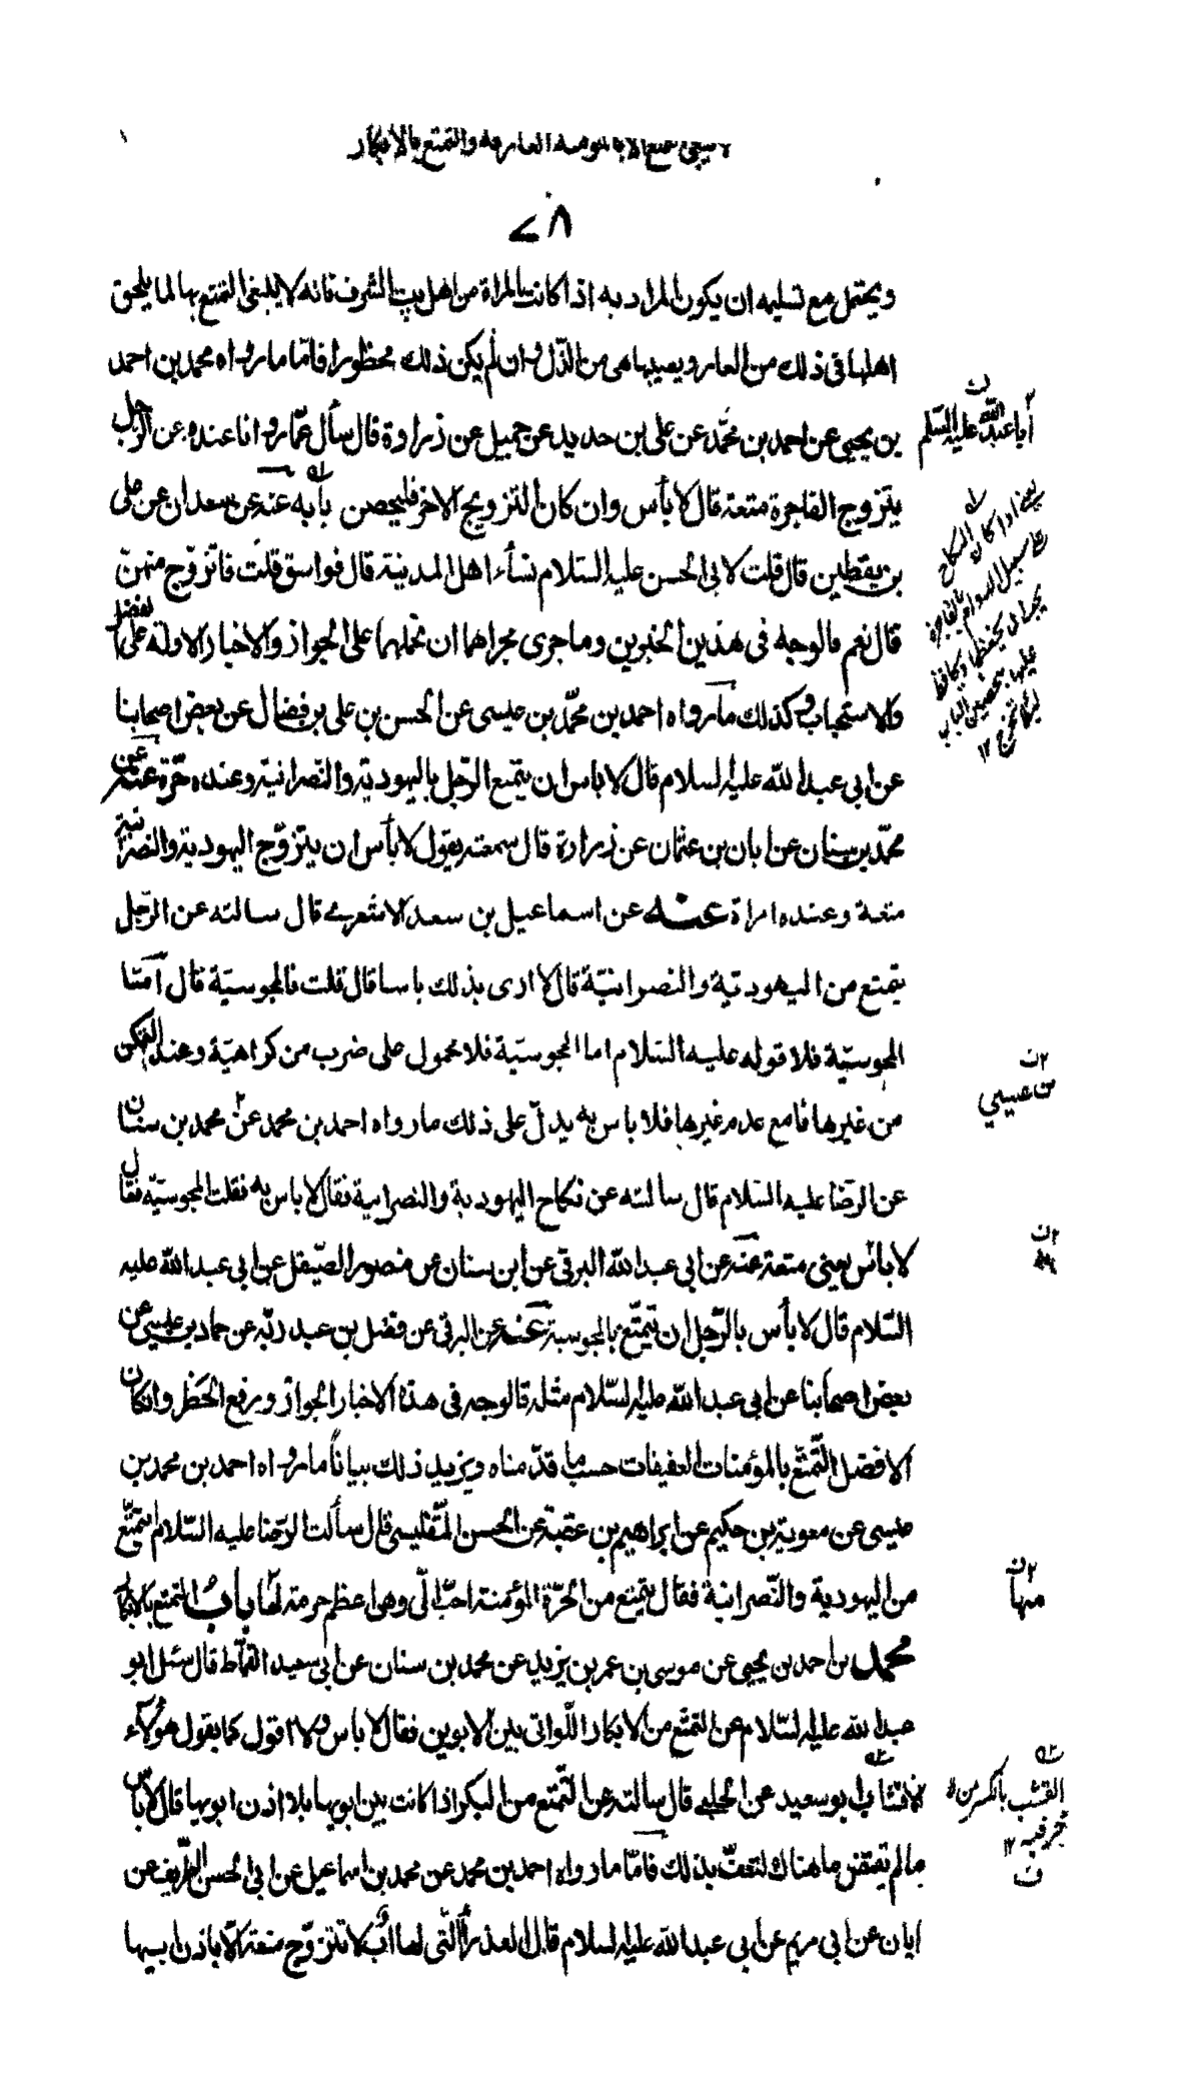 لا ينبغي التمتع الا بالمومنة العارفة والتمتع بالأبكار
٧٨
ويحتمل مع تسليمه ان يكون المراد به اذا كانت المراة من اهل بيت الشرف فانه لا ينبغى التمتع بها لما يلحق
اهلها فى ذلك من العار ويصيبها هى من الذّل وان لم يكن ذلك محظورا فامّا ما رواه محمد بن احمد
بن يحيى عن احمد بن محمّد عن على بن حديد عن جميل عن زرارة قال سأل عمّار وانا عنده عن الرجل
يتزوج الفاجرة متعة قال لا بأس وان كان التزويج الاخر فليحصن بابه عنه عن سعدان عن على
بن يقطين قال قلت لابى الحسن عليه السّلام نساء اهل المدينة قال فواسق قلت فاتزوّج منهنّ
قال نعم فالوجه فى هذين الخبرين وما جرى مجراهما ان نحملهما على الجواز والاخبار الاولة على الفضل
والاستحباب وكذلك ما رواه احمد بن محمّد بن عيسى عن الحسن بن على بن فضال عن بعض اصحابنا
عن ابى عبد الله عليه السلام قال لا باس ان يتمتع الرّجل باليهودية والنصرانية وعنده حرّة عنه عن
محمّد بن سنان عن ابان بن عثمان عن زرارة قال سمعته يقول لا بأس ان يتزوّج اليهودية والنصرانية
متعة وعنده امراة عنه عن اسماعيل بن سعد الاشعرى قال سالته عن الرّجل
يتمتع من اليهوديّة والنصرانيّة قال لا ارى بذلك باسا قال قلت فالمجوسيّة قال امّا
المجوسيّة فلا قوله عليه السّلام اما المجوسيّة فلا محمول على ضرب من كراهيّة وعند التمكن
من غيرها فامع عدم غيرها فلا باس به يدلّ على ذلك ما رواه احمد بن محمد عن محمد بن سنان
عن الرضا عليه السّلام قال سالته عن نكاح اليهودية والنصرانية فقال لا باس به فقلت المجوسيّة فقال
لا بأس يعنى متعة عنه عن ابى عبد الله البرقى عن ابن سنان عن منصور الصّيقل عن ابى عبد الله عليه
السّلام قال لا بأس بالرّجل ان يتمتّع بالمجوسية عنه عن البرقى عن فضل بن عبد ربّه عن حماد بن عيسى عن
بعض اصحابنا عن ابى عبد الله عليه السّلام مثله فالوجه فى هذه الاخبار الجواز ورفع الحظر وان كان
الافضل التّمتّع بالمؤمنات العفيفات حسب ما قدّمناه ويزيد ذلك بيانًا ما رواه احمد بن محمد بن
عيسى عن معوية بن حكيم عن ابراهيم بن عقبة عن الحسن التّفليسى قال سألت الرّضا عليه السّلام ايتمتّع
من اليهودية والنّصرانية فقال يتمتع من الحرّة المؤمنة احبّ الىّ وهى اعظم حرمة لها باب التمتع بالابكار
محمد بن احمد بن يحيى عن موسى بن عمر بن يزيد عن محمد بن سنان عن ابى سعيد القمّاط قال سئل ابو
عبد الله عليه السّلام عن التمتّع من الابكار اللّواتى بين الابوين فقال لا باس ولا اقول كما يقول هؤلاء
الاقشاب ابو سعيد عن الحلبى قال سالته عن التّمتع من البكر اذا كانت بين ابويها بلا اذن ابويها قال لا بأس
ما لم يقتض ما هناك لتعفّ بذلك فامّا ما رواه احمد بن محمد عن محمد بن اسماعيل عن ابى الحسن الظريف عن
ابان عن ابى مريم عن ابى عبد الله عليه السلام قال العذراء الّتى لها اب لا تتزوّج متعة الّا باذن ابيها
أبا عبد الله عليه السّلم
يعنى اذا كان النكاح
على سبيل الدوام بالفاجرة
يجب ان يحفظها ويحافظ
عليها بتحصين الباب
لئلا تخرج ١٢
بن عيسي
به
منها
القشب بالكسر من لا
خير فيه ١٢